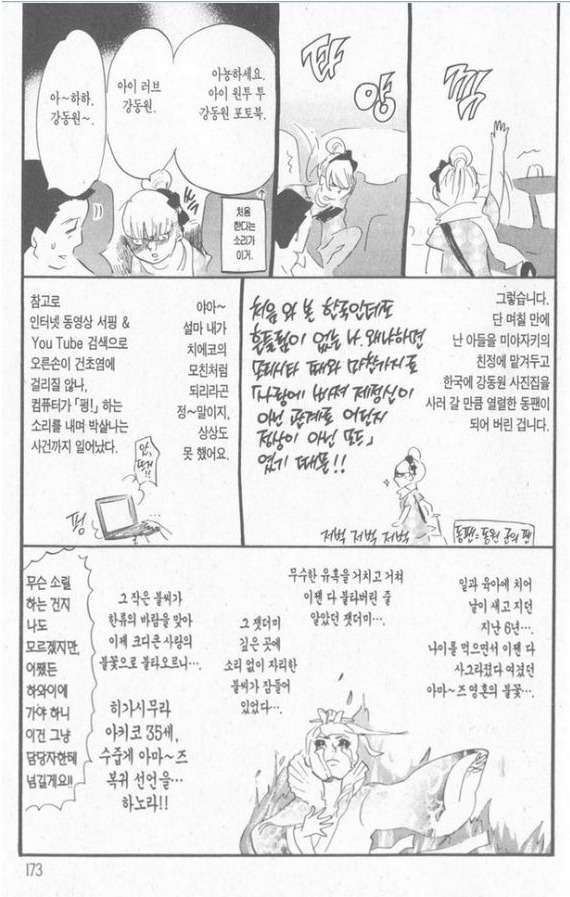 끽
양
아농하세요.
아이 원투 투
강동원 포토북.
아이 러브
강동원.
처음
한다는
소리가
이거.
아~하하.
강동원~.
그렇습니다.
단 며칠 만에
난 아들을 미야자키의
친정에 맡겨두고
한국에 강동원 사진집을
사러 갈 만큼 열렬한 동팬이
되어 버린 겁니다.
처음 와 본 한국인데도
흔들림이 없는 나. 왜냐하면
모리시타 때와 마찬가지로
「사랑에 빠져 제정신이
아닌 관계로 어딘지
정상이 아닌 모드」
였기 때문!!
저벅 저벅 저벅
동팬=동원 군의 팬
야아~
설마 내가
치에코의
모친처럼
되리라곤
정~말이지,
상상도
못 했어요.
참고로
인터넷 동영상 서핑 &
You Tube 검색으로
오른손이 건초염에
걸리질 않나,
컴퓨터가「펑!」하는
소리를 내며 박살나는
사건까지 일어났다.
펑
일과 육아에 치어
날이 새고 지던
지난 6년….
나이를 먹으면서 이젠 다
사그라졌다 여겼던
아마~즈 영혼의 불꽃….
무수한 유혹을 거치고 거쳐
이젠 다 불타버린 줄
알았던 잿더미….
그 잿더미
깊은 곳에
소리 없이 자리한
불씨가 잠들어
있었다….
그 작은 불씨가
한류의 바람을 맞아
이제 코디콘 사랑의
불꽃으로 불타오르니….
히가시무라
아키코 35세,
수줍게 아마~즈
복귀 선언을…
하노라!!
무슨 소릴
하는 건지
나도
모르겠지만,
어쨌든
하와이에
가야 하니
이건 그냥
담당자한테
넘길게요!!
173